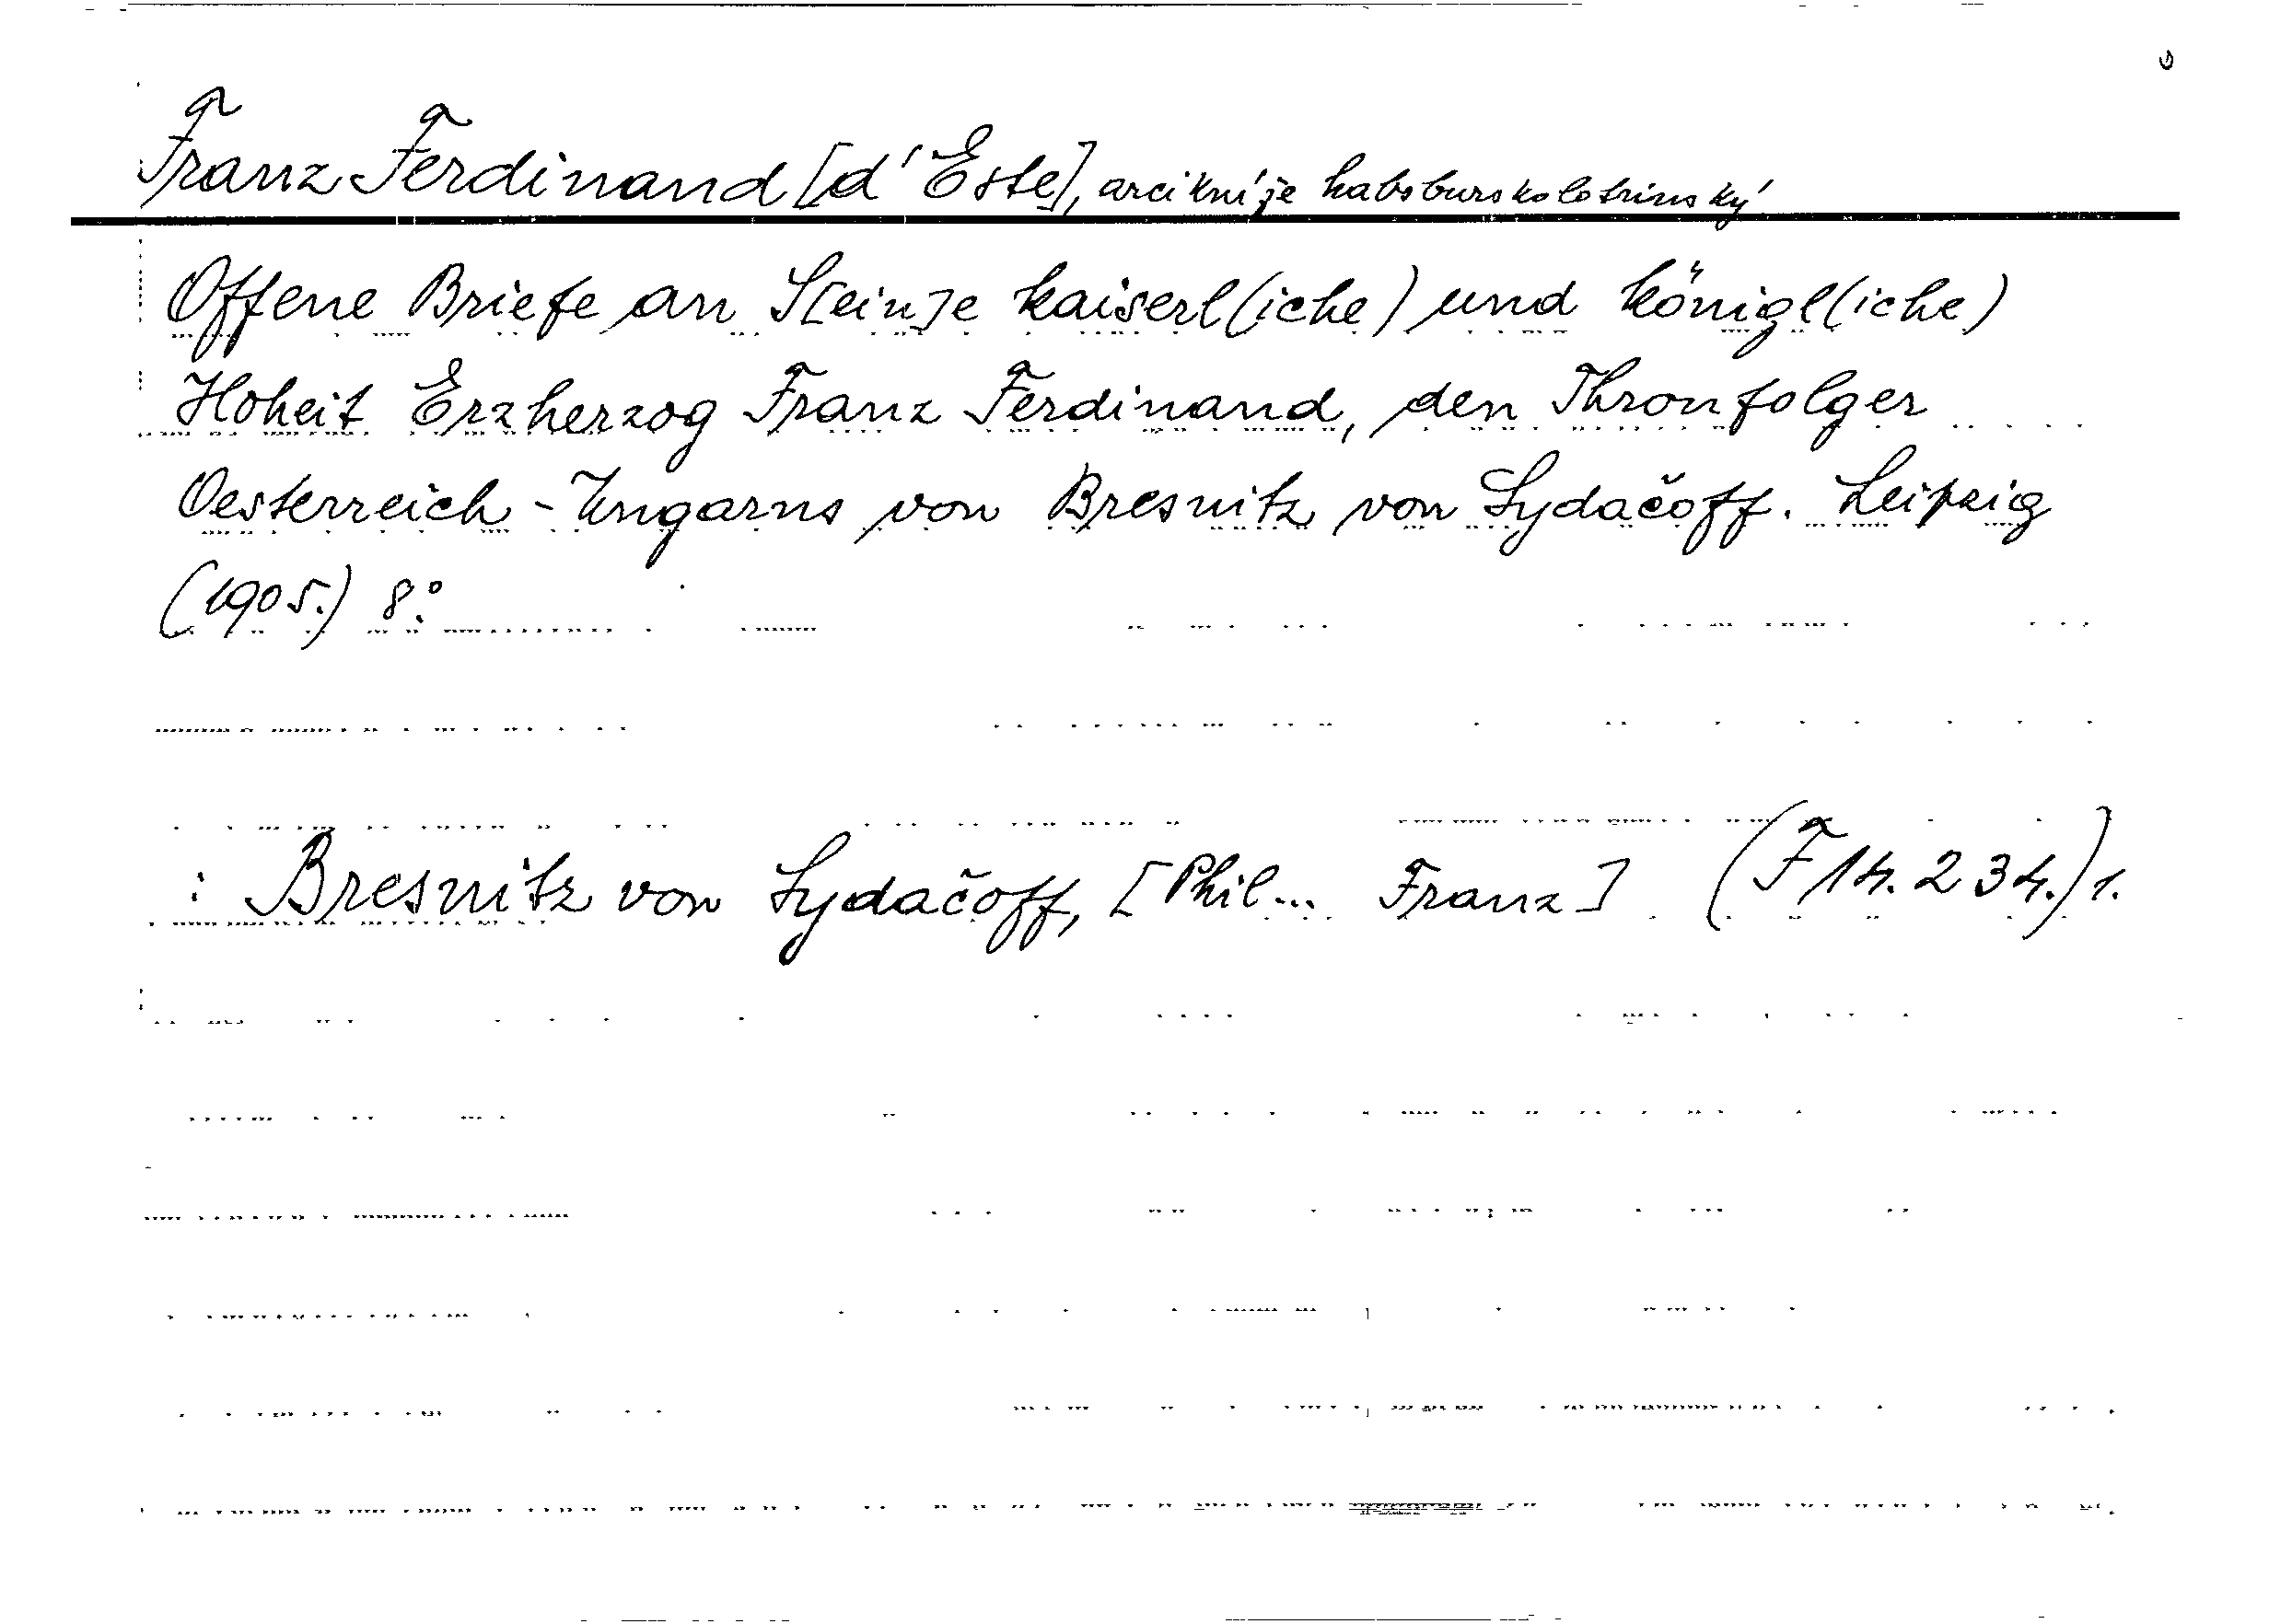 Franz Ferdinand [d'Este], arcikníže habsburskolotrinský
Offene Briefe an S[ein]e kaiserl(iche) und königl(iche)
Hoheit Erzherzog Franz Ferdinand, den Thronfolger
Oesterreich-Ungarns von Bresnitz von Sydačoff. Leipzig
(1905.) 8°.
: Bresnitz von Sydačoff, [Phil... Franz] (F 14.234.) 1.